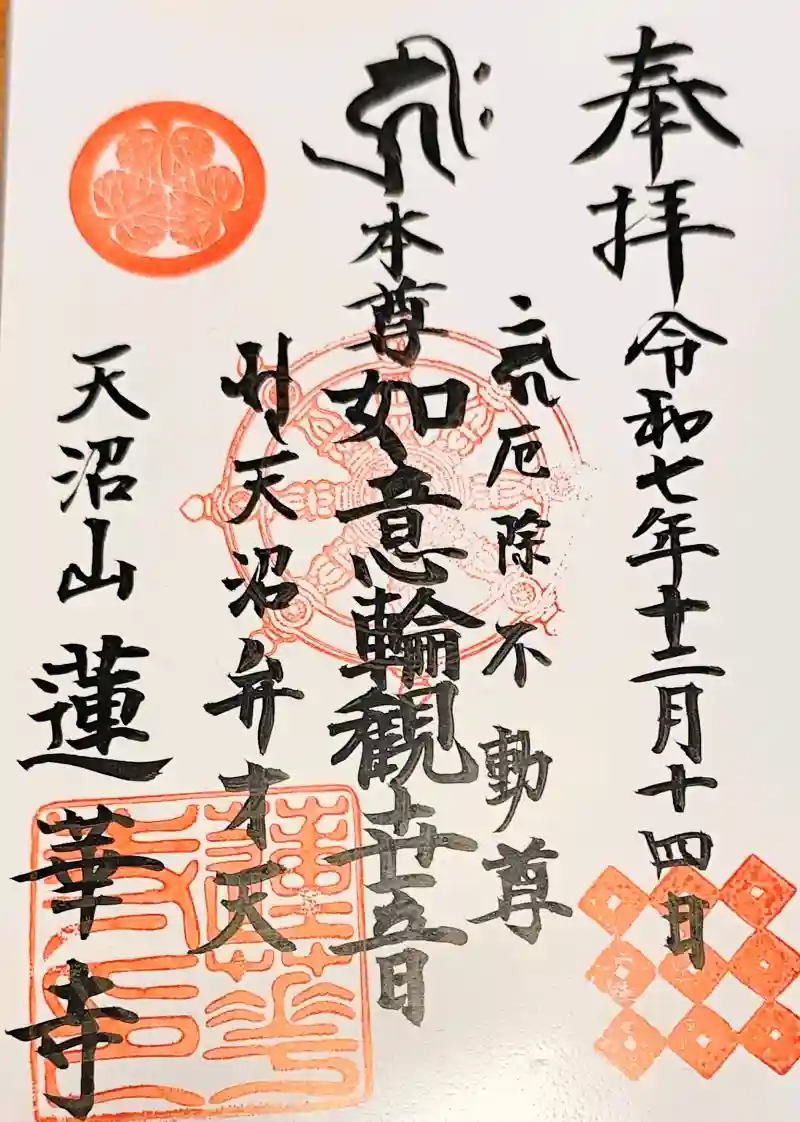 奉拝 令和七年十二月十四日
厄除不動尊
本尊如意輪観世音
天沼弁才天
天沼山蓮華寺
蓮華